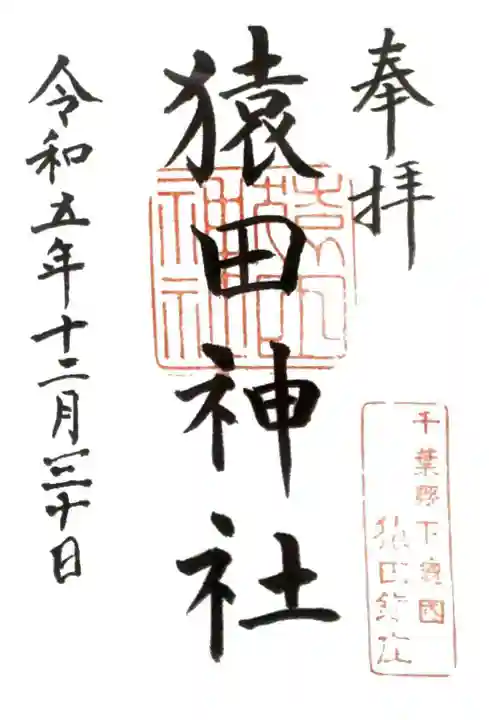 奉拝
猿田神社
令和五年十二月三十日
千葉縣下總國
猿田鎮座